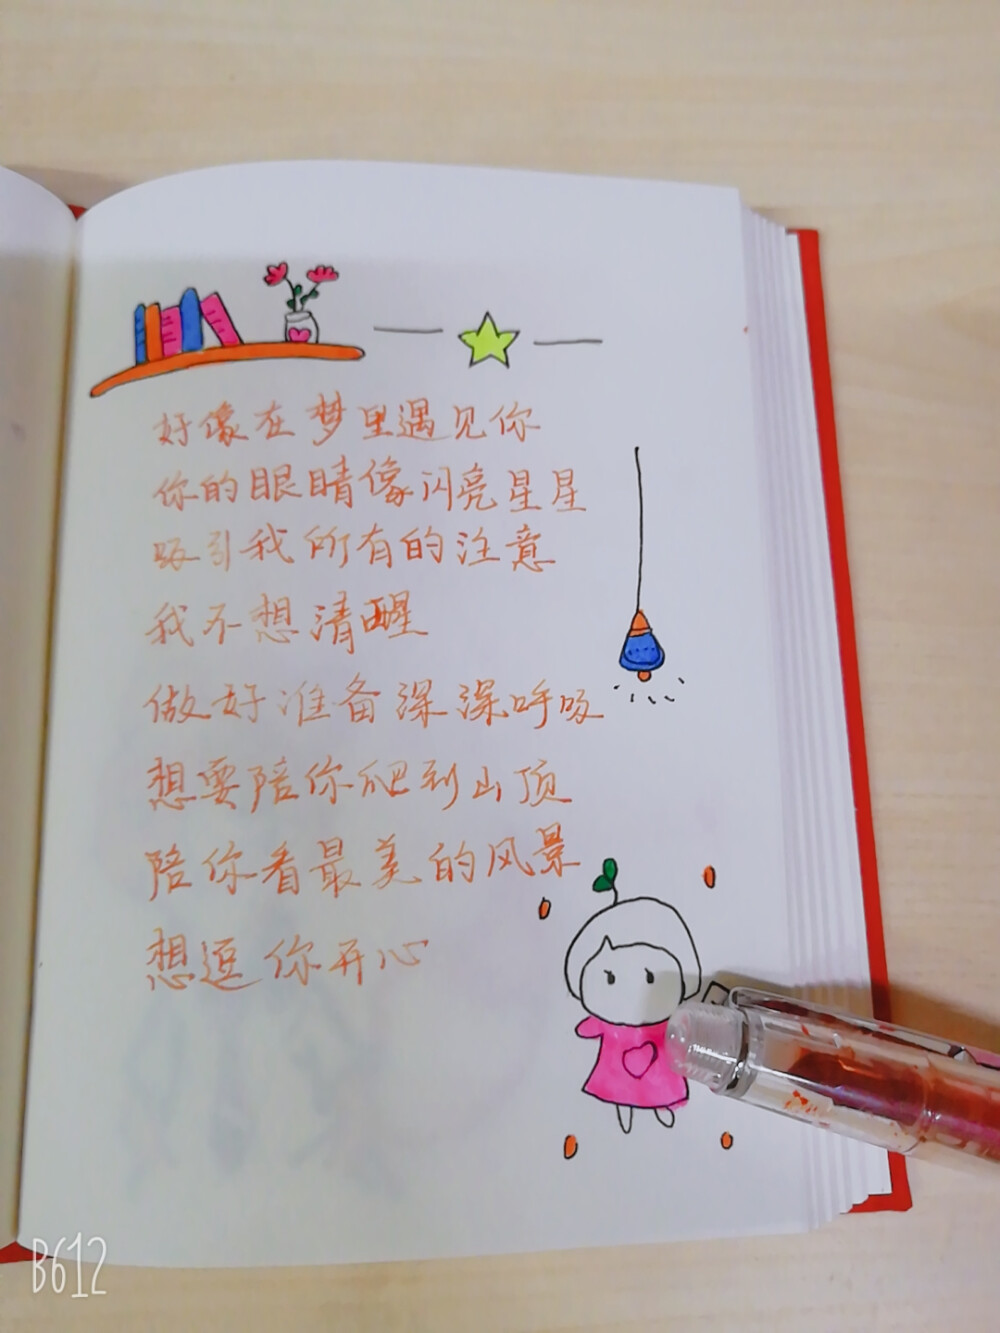 好像在梦里遇见你
你的眼睛像闪亮星星
吸引我所有的注意
我不想清醒
做好准备深深呼吸
想要陪你爬到山顶
陪你看最美的风景
想逗你开心
B612